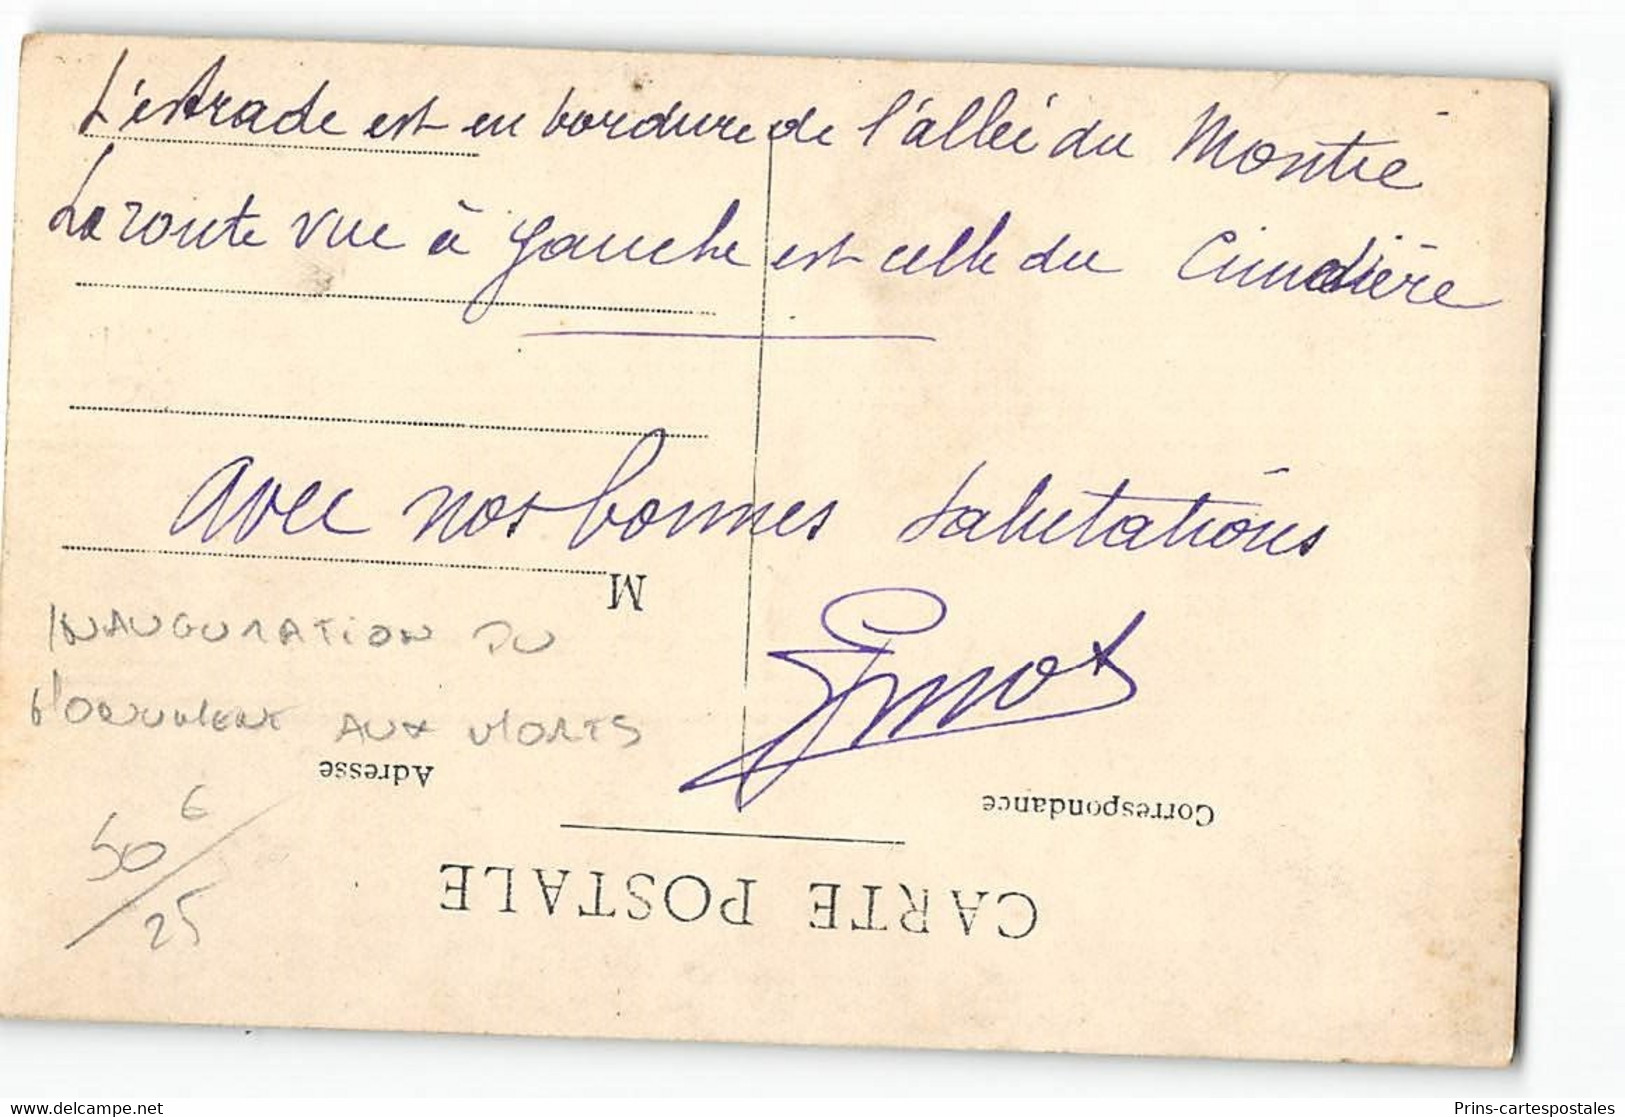 L'estrade est en bordure de l'allée du Montié
La route vue à gauche est celle du Cimetière
avec nos bonnes salutations
M
INAUGURATION DU
MONUMENT AUX MORTS
Adresse
Correspondance
50 €
25
CARTE POSTALE
Prins-cartespostales
www.delcampe.net